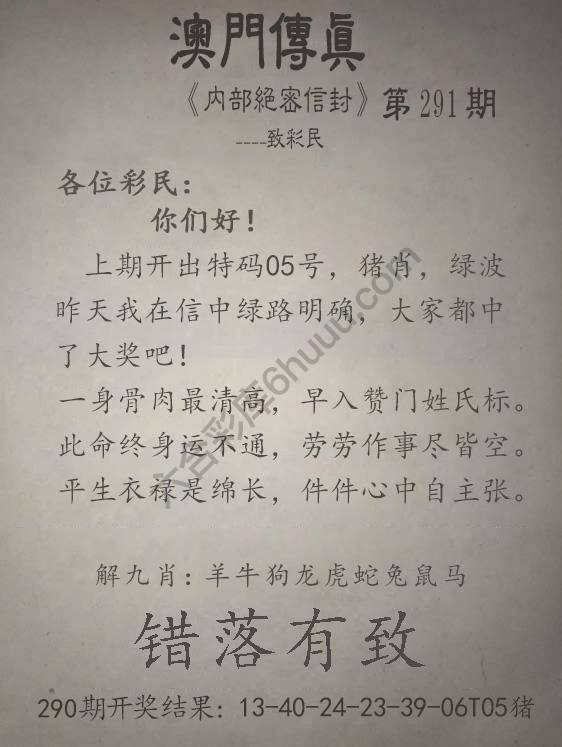 澳門傳眞
《内部絕密信封》第291期
----致彩民
各位彩民：
你们好！
上期开出特码05号，猪肖，绿波
昨天我在信中绿路明确，大家都中
了大奖吧！
一身骨肉最清高，早入赞门姓氏标。
此命终身运不通，劳劳作事尽皆空。
平生衣禄是绵长，件件心中自主张。
六合彩库6huuu.com
解九肖：羊牛狗龙虎蛇兔鼠马
错落有致
290期开奖结果：13-40-24-23-39-06T05猪